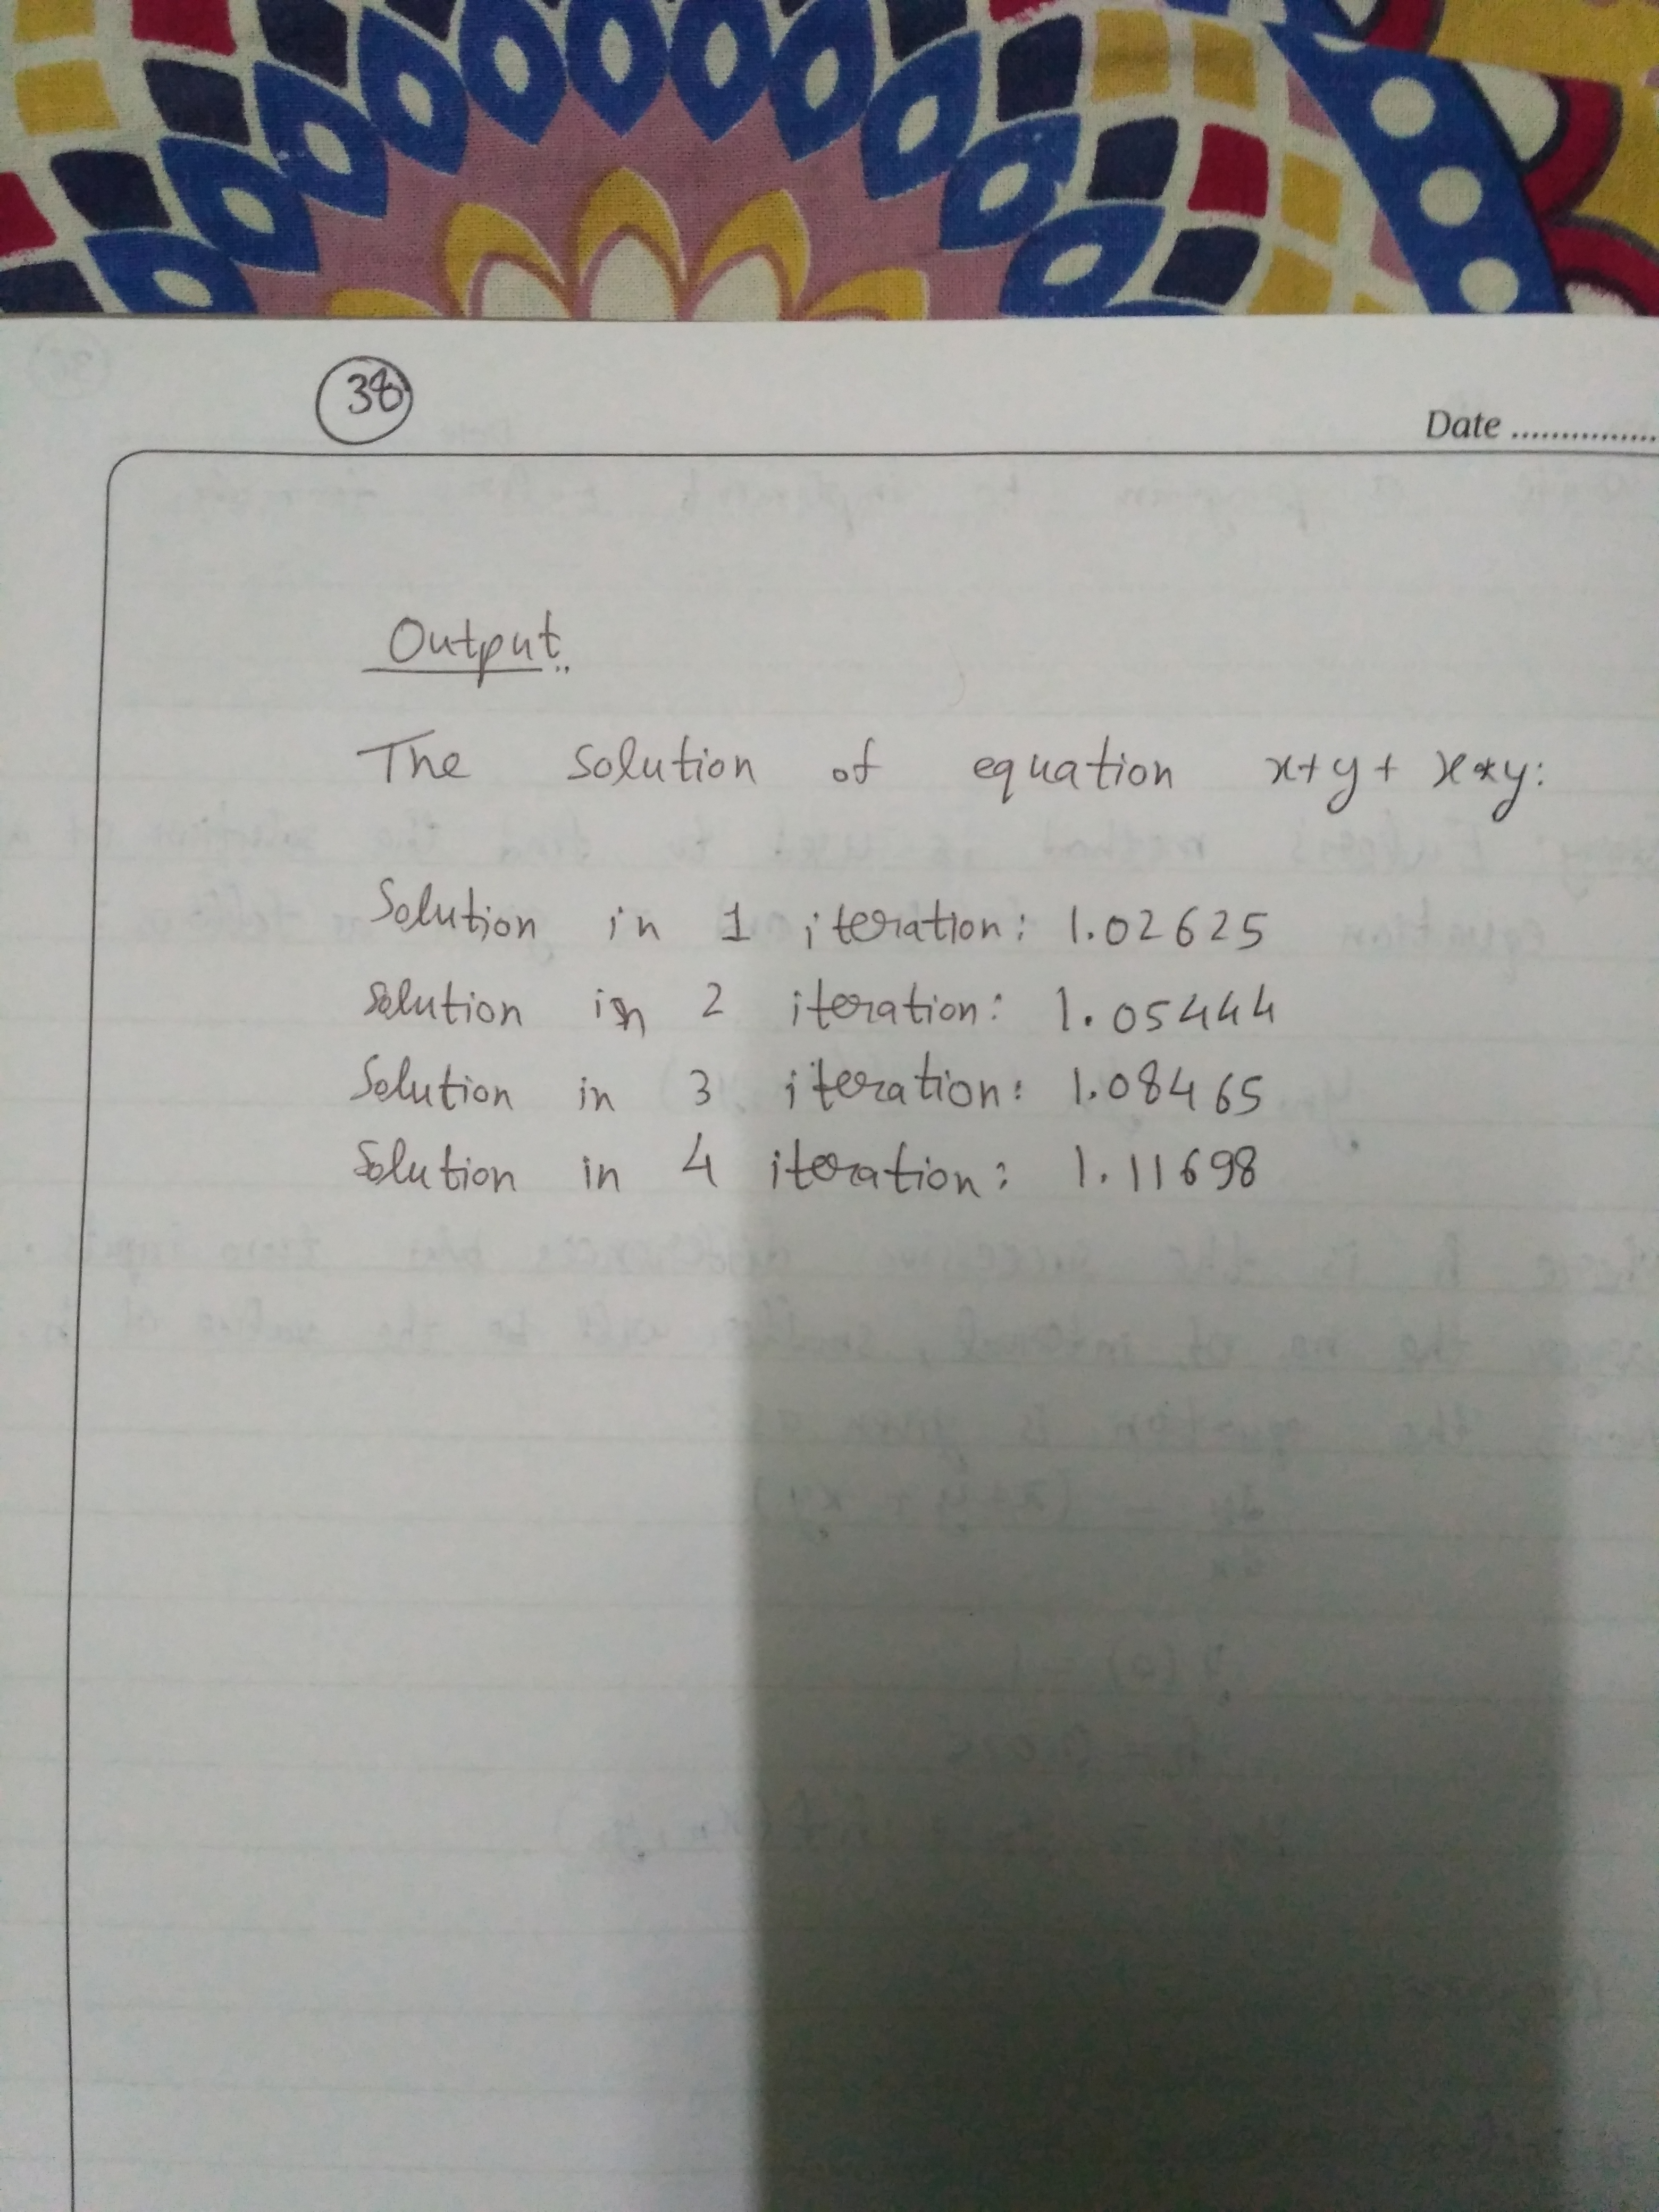 38
Date ...............
Output
The solution of equation x+y+ x*y:
Solution in 1 iteration: 1.02625
Solution in 2 iteration: 1.05444
Solution in 3 iteration: 1.08465
Solution in 4 iteration: 1.11698